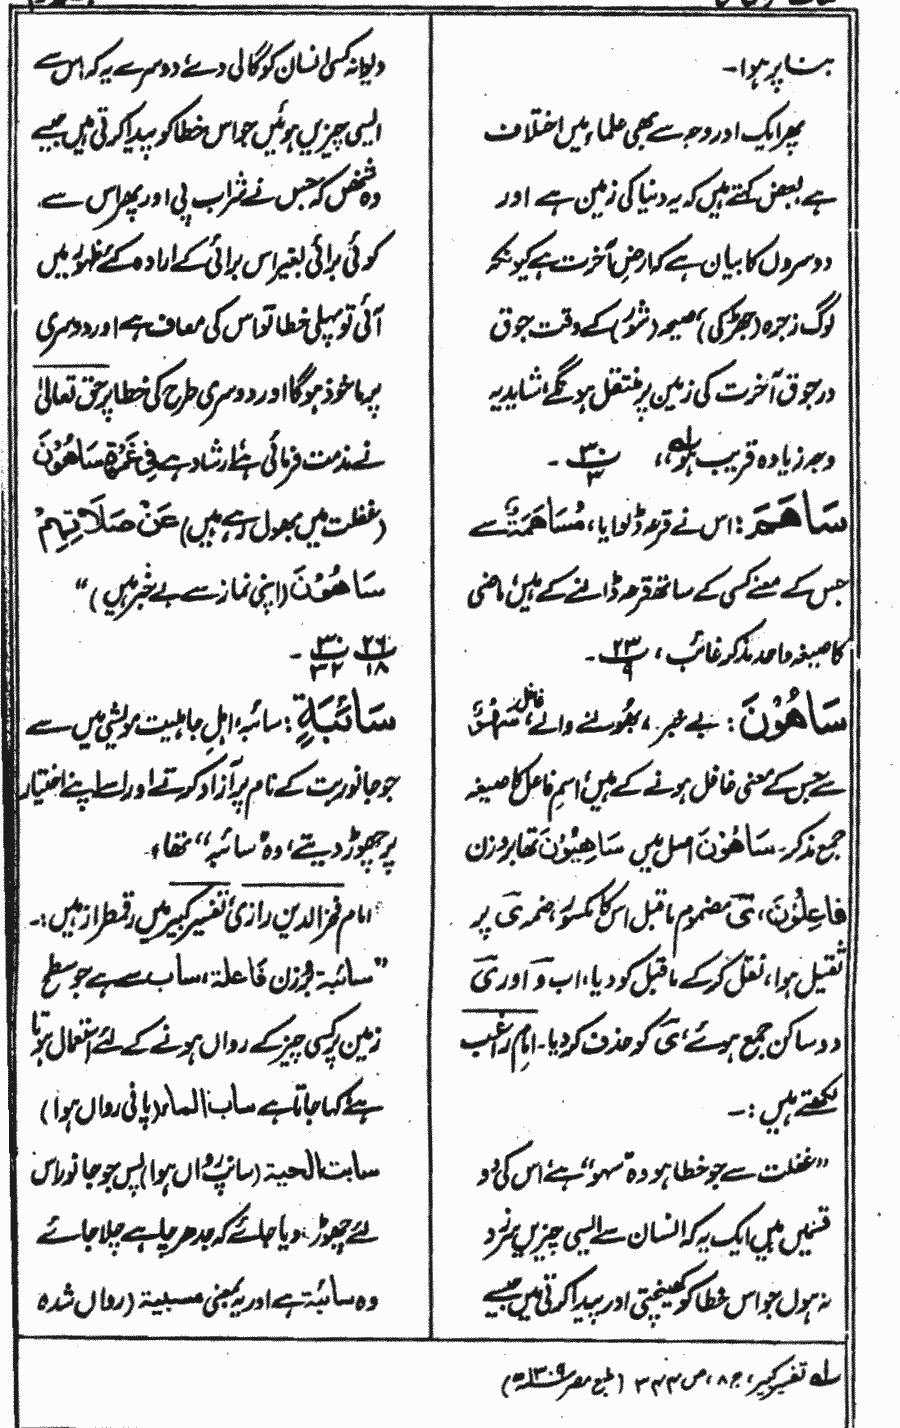 بنا پر ہوا۔
پھر ایک اور وجہ سے بھی علماء میں اختلاف
ہے، بعض کہتے ہیں کہ یہ دنیا کی زمین ہے اور
دوسروں کا بیان ہے کہ ارضِ آخرت ہے کیونکہ
لوگ زجرہ (جھڑکی)، صیحہ (شور) کے وقت جوق
در جوق آخرت کی زمین پر منتقل ہونگے، شاید یہ
وجہ زیادہ قریب ہو،، ۳۰/۳ ۔
سَاهَمَ : اس نے قرعہ ڈلوایا، مُسَاهَمَةٌ سے
جس کے معنے کسی کے ساتھ قرعہ ڈالنے کے ہیں، ماضی
کا صیغہ واحد مذکر غائب، ۲۳/۹ ۔
سَاهُوْنَ : بے خبر، بھولنے والے، غافل، سَهْوٌ
سے جس کے معنی غافل ہونے کے ہیں، اسم فاعل کا صیغہ
جمع مذکر۔ سَاهُوْنَ اصل میں سَاهِيُوْنَ تھا بروزن
فَاعِلُوْنَ، ی مضموم ماقبل اس کا مکسور، ضمہ ی پر
ثقیل ہوا، نقل کر کے ماقبل کو دیا، اب و اور ی
دو ساکن جمع ہوئے، ی کو حذف کر دیا۔ امام راغب
لکھتے ہیں :۔
”غفلت سے جو خطا ہو وہ ”سہو“ ہے، اس کی دو
قسمیں ہیں ایک یہ کہ انسان سے ایسی چیزیں سرزد
نہ ہوں جو اس خطا کو کھینچتی اور پیدا کرتی ہیں جیسے
دیوانہ کسی انسان کو گالی دے، دوسرے یہ کہ اس سے
ایسی چیزیں ہوئیں جو اس خطا کو پیدا کرتی ہیں جیسے
وہ شخص کہ جس نے شراب پی اور پھر اس سے
کوئی برائی بغیر اس برائی کے ارادہ کئے ظہور میں
آئی تو پہلی خطا تو اس کی معاف ہے اور دوسری
پر ماخوذ ہوگا اور دوسری طرح کی خطا پر حق تعالیٰ
نے مذمت فرمائی ہے، ارشاد ہے فِي غَمْرَةٍ سَاهُوْنَ
(غفلت میں بھول رہے ہیں) عَنْ صَلَاتِهِمْ
سَاهُوْنَ (اپنی نماز سے بے خبر ہیں)“
۲۶/۱۸ ۳۰/۳۲ ۔
سَائِبَةٍ : سائبہ، اہل جاہلیت مویشی میں سے
جو جانور بت کے نام پر آزاد کرتے اور اسے اپنے اختیار
پر چھوڑ دیتے، وہ ”سائبہ“ تھا،
امام فخر الدین رازی، تفسیر کبیر میں رقمطراز ہیں :۔
”سائبة بوزن فاعلة، ساب سے ہے جو سطح
زمین پر کسی چیز کے رواں ہونے کے لئے استعمال ہوتا
ہے، کہا جاتا ہے ساب الماء (پانی رواں ہوا)
سابت الحية (سانپ رواں ہوا) پس جو جانور اس
لئے چھوڑ دیا جائے کہ جدھر چاہے چلا جائے
وہ سائبة ہے اور یہ بمعنی مسيبة (رواں شدہ
لہ تفسیر کبیر، ج ۸، ص ۳۴۳ (طبع مصر ۱۳۰۹ھ)